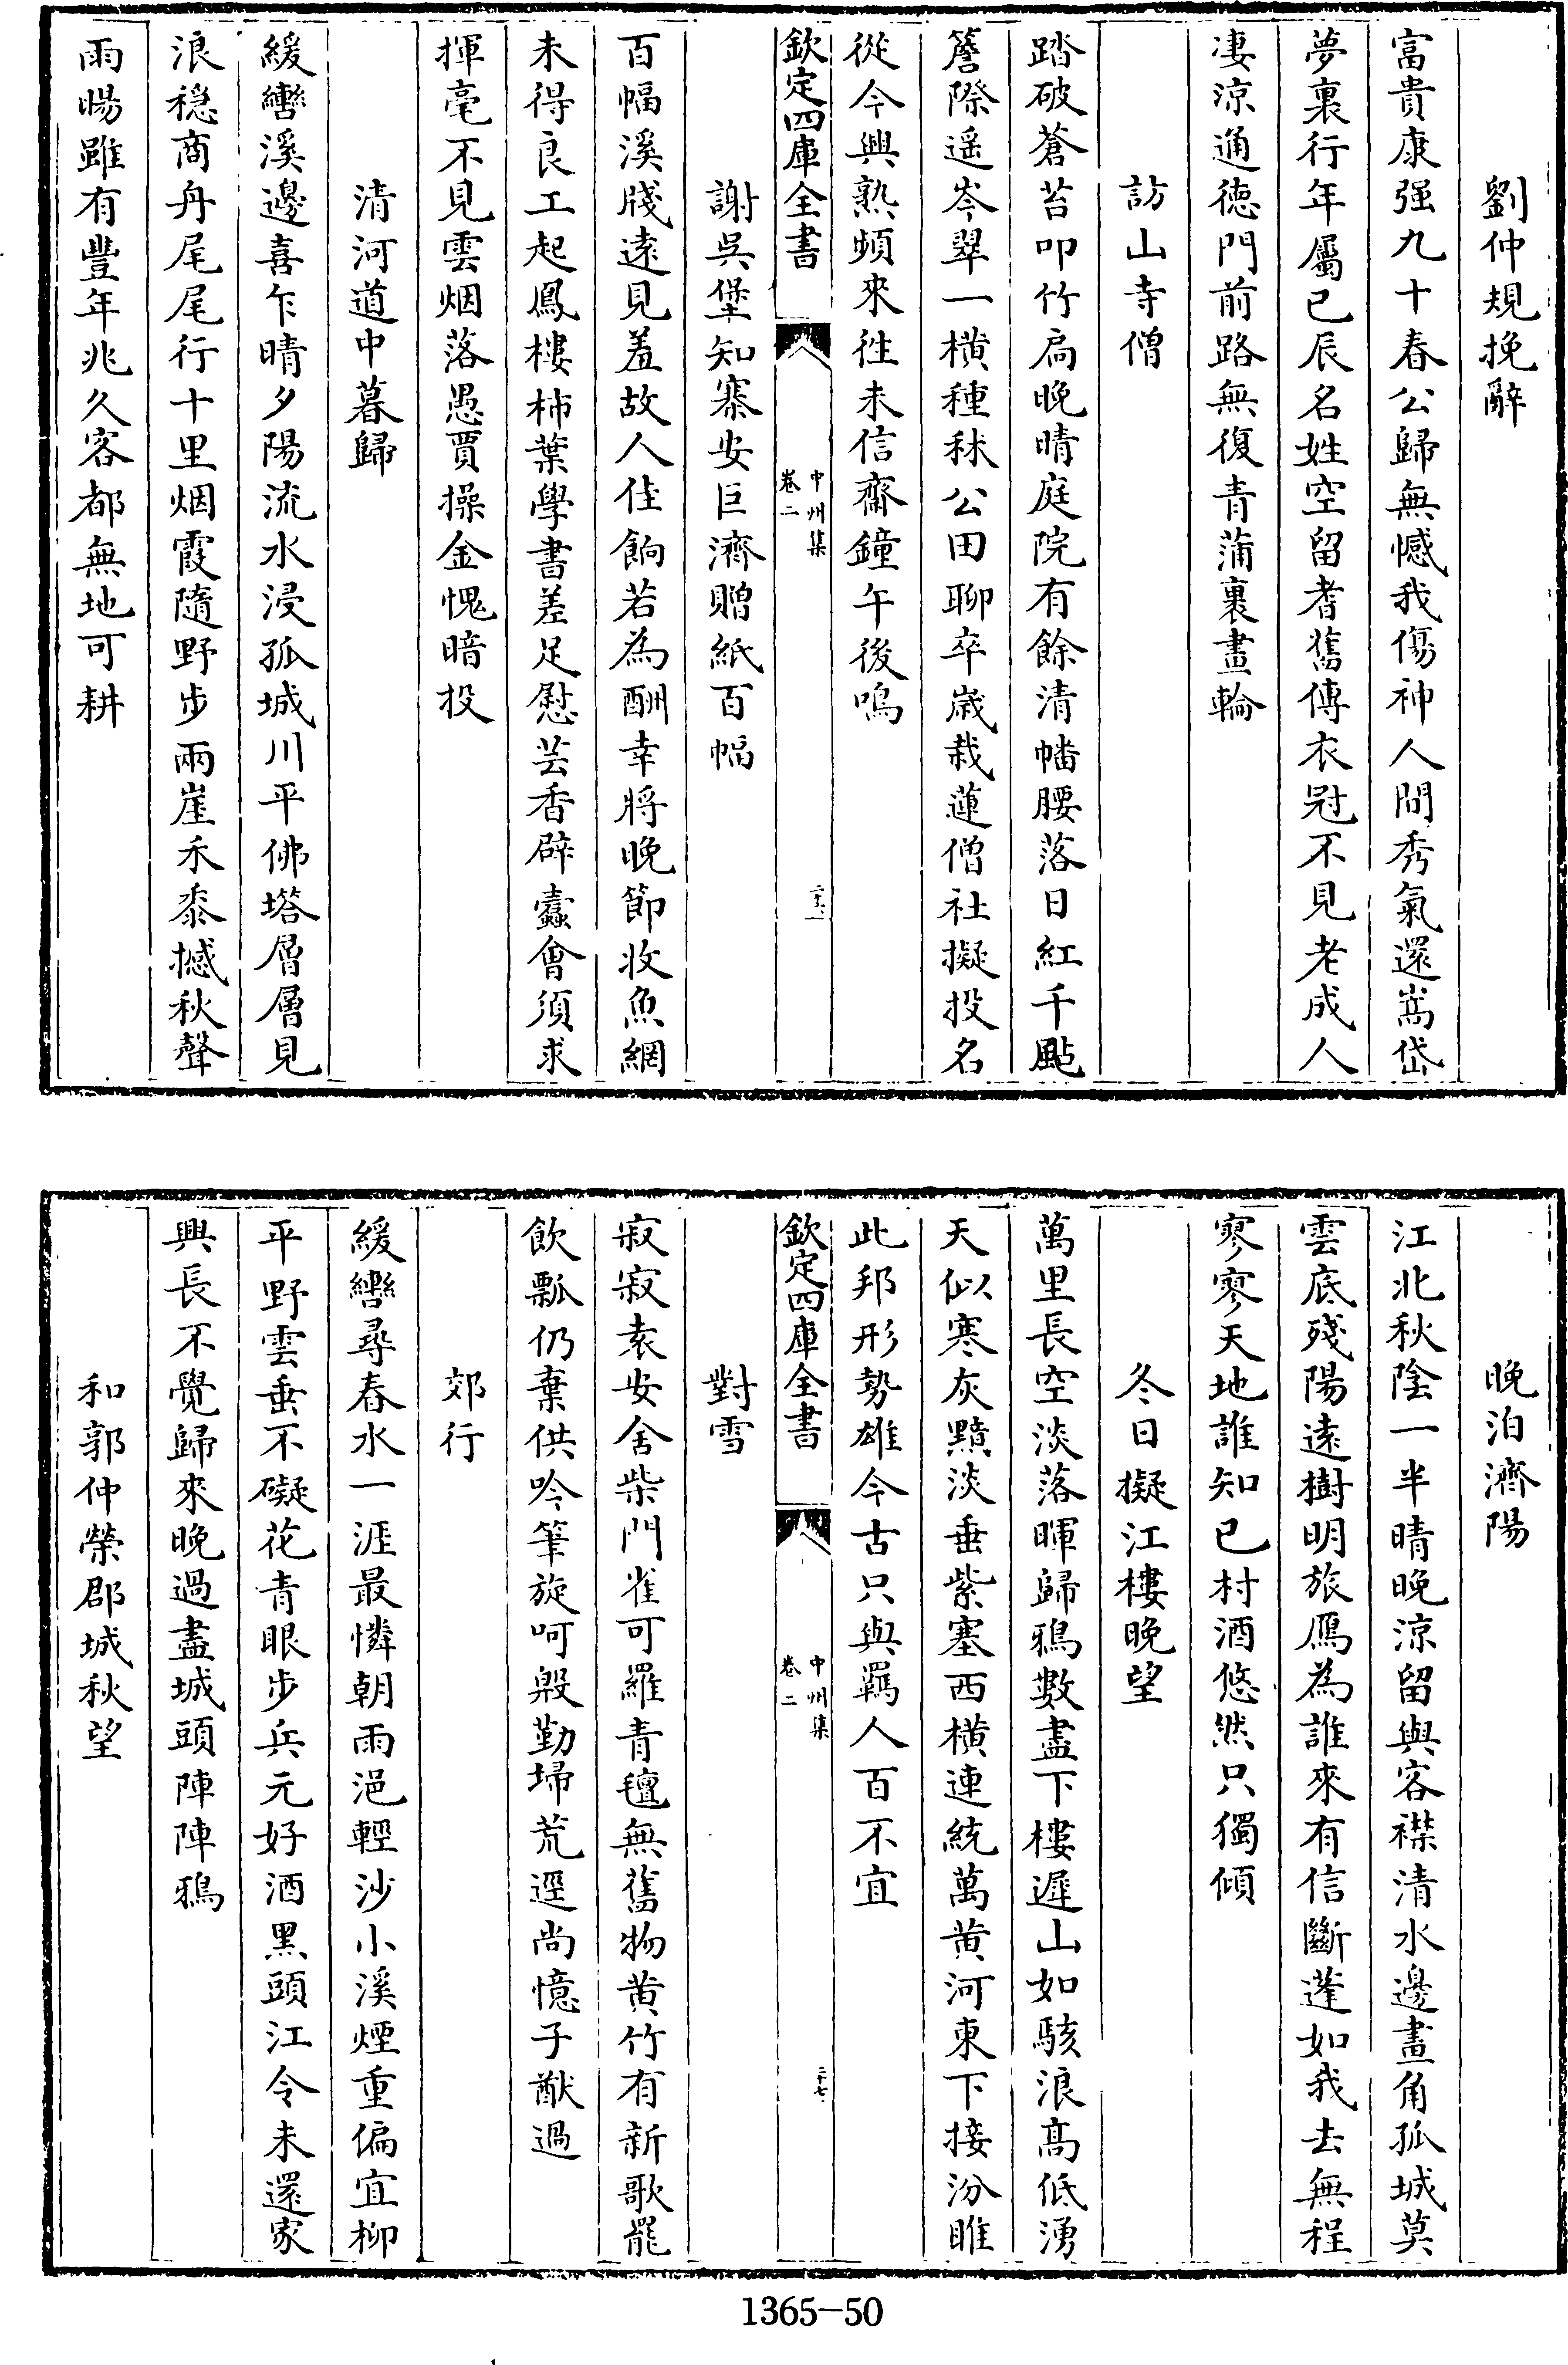 劉仲規挽辭
富貴康强九十春公歸無憾我傷神人間秀氣還嵩岱
夢裏行年屬已辰名姓空留耆舊傳衣冠不見老成人
凄涼通德門前路無復青蒲裹畫輪
訪山寺僧
踏破蒼苔叩竹扃晚晴庭院有餘清幡腰落日紅千點
簷際遥岑翠一横種秫公田聊卒歳栽蓮僧社擬投名
從今興熟頻來徃未信齋鐘午後鳴
欽定四庫全書
中州集
卷二
謝吳堡知寨安巨濟贈紙百幅
百幅溪牋逺見羞故人佳餉若為酬幸將晚節收魚網
未得良工起鳳樓柿葉學書差足慰芸香辟蠧會須求
揮毫不見雲烟落愚賈操金愧暗投
清河道中暮歸
緩轡溪邊喜乍晴夕陽流水浸孤城川平佛塔層層見
浪穏商舟尾尾行十里烟霞隨野步兩崖禾黍撼秋聲
雨暘雖有豐年兆久客都無地可耕
晚泊濟陽
江北秋陰一半晴晚涼留與客襟清水邊畫角孤城莫
雲底殘陽逺樹明旅鴈為誰來有信斷蓬如我去無程
寥寥天地誰知已村酒悠然只獨傾
冬日擬江樓晚望
萬里長空淡落暉歸鴉數盡下樓遲山如駭浪髙低湧
天似寒灰黯淡垂紫塞西横連統萬黄河東下接汾睢
此邦形勢雄今古只與羈人百不宜
欽定四庫全書
中州集
卷二
二十七
對雪
寂寂袁安舍柴門雀可羅青氊無舊物黄竹有新歌罷
飲瓢仍棄供吟筆旋呵殷勤埽荒逕尚憶子猷過
郊行
緩轡尋春水一涯最憐朝雨浥輕沙小溪煙重偏宜柳
平野雲垂不礙花青眼步兵元好酒黑頭江令未還家
興長不覺歸來晚過盡城頭陣陣鴉
和郭仲榮郡城秋望
1365-50